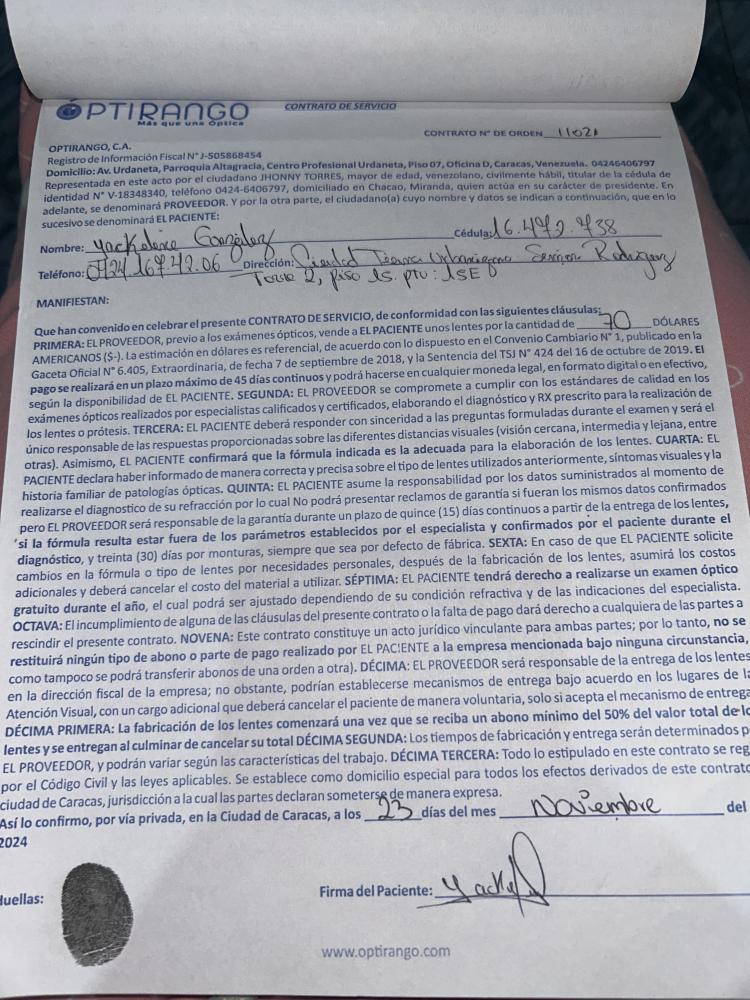 OPTIRANGO
Más que una Óptica
CONTRATO DE SERVICIO
CONTRATO N° DE ORDEN 11021
OPTIRANGO, C.A.
Registro de Información Fiscal N° J-505868454
Domicilio: Av. Urdaneta, Parroquia Altagracia, Centro Profesional Urdaneta, Piso 07, Oficina D, Caracas, Venezuela. 04246406797
Representada en este acto por el ciudadano JHONNY TORRES, mayor de edad, venezolano, civilmente hábil, titular de la cédula de
identidad N° V-18348340, teléfono 0424-6406797, domiciliado en Chacao, Miranda, quien actúa en su carácter de presidente. En
adelante, se denominará PROVEEDOR. Y por la otra parte, el ciudadano(a) cuyo nombre y datos se indican a continuación, que en lo
sucesivo se denominará EL PACIENTE:
Nombre: Yackeline González Cédula: 16.472.738
Teléfono: 0424 167.42.06 Dirección: Ciudad Tiuna Urbanismo Simon Rodriguez
Torre 2, piso 15. pto: 15E
MANIFIESTAN:
Que han convenido en celebrar el presente CONTRATO DE SERVICIO, de conformidad con las siguientes cláusulas:
PRIMERA: EL PROVEEDOR, previo a los exámenes ópticos, vende a EL PACIENTE unos lentes por la cantidad de 70 DÓLARES
AMERICANOS ($-). La estimación en dólares es referencial, de acuerdo con lo dispuesto en el Convenio Cambiario N° 1, publicado en la
Gaceta Oficial N° 6.405, Extraordinaria, de fecha 7 de septiembre de 2018, y la Sentencia del TSJ N° 424 del 16 de octubre de 2019. El
pago se realizará en un plazo máximo de 45 días continuos y podrá hacerse en cualquier moneda legal, en formato digital o en efectivo,
según la disponibilidad de EL PACIENTE. SEGUNDA: EL PROVEEDOR se compromete a cumplir con los estándares de calidad en los
exámenes ópticos realizados por especialistas calificados y certificados, elaborando el diagnóstico y RX prescrito para la realización de
los lentes o prótesis. TERCERA: EL PACIENTE deberá responder con sinceridad a las preguntas formuladas durante el examen y será el
único responsable de las respuestas proporcionadas sobre las diferentes distancias visuales (visión cercana, intermedia y lejana, entre
otras). Asimismo, EL PACIENTE confirmará que la fórmula indicada es la adecuada para la elaboración de los lentes. CUARTA: EL
PACIENTE declara haber informado de manera correcta y precisa sobre el tipo de lentes utilizados anteriormente, síntomas visuales y la
historia familiar de patologías ópticas. QUINTA: EL PACIENTE asume la responsabilidad por los datos suministrados al momento de
realizarse el diagnostico de su refracción por lo cual No podrá presentar reclamos de garantía si fueran los mismos datos confirmados
pero EL PROVEEDOR será responsable de la garantía durante un plazo de quince (15) días continuos a partir de la entrega de los lentes,
si la fórmula resulta estar fuera de los parámetros establecidos por el especialista y confirmados por el paciente durante el
diagnóstico, y treinta (30) días por monturas, siempre que sea por defecto de fábrica. SEXTA: En caso de que EL PACIENTE solicite
cambios en la fórmula o tipo de lentes por necesidades personales, después de la fabricación de los lentes, asumirá los costos
adicionales y deberá cancelar el costo del material a utilizar. SÉPTIMA: EL PACIENTE tendrá derecho a realizarse un examen óptico
gratuito durante el año, el cual podrá ser ajustado dependiendo de su condición refractiva y de las indicaciones del especialista.
OCTAVA: El incumplimiento de alguna de las cláusulas del presente contrato o la falta de pago dará derecho a cualquiera de las partes a
rescindir el presente contrato. NOVENA: Este contrato constituye un acto jurídico vinculante para ambas partes; por lo tanto, no se
restituirá ningún tipo de abono o parte de pago realizado por EL PACIENTE a la empresa mencionada bajo ninguna circunstancia,
como tampoco se podrá transferir abonos de una orden a otra). DÉCIMA: EL PROVEEDOR será responsable de la entrega de los lentes
en la dirección fiscal de la empresa; no obstante, podrían establecerse mecanismos de entrega bajo acuerdo en los lugares de la
Atención Visual, con un cargo adicional que deberá cancelar el paciente de manera voluntaria, solo si acepta el mecanismo de entrega
DÉCIMA PRIMERA: La fabricación de los lentes comenzará una vez que se reciba un abono mínimo del 50% del valor total de lo
lentes y se entregan al culminar de cancelar su total DÉCIMA SEGUNDA: Los tiempos de fabricación y entrega serán determinados p
EL PROVEEDOR, y podrán variar según las características del trabajo. DÉCIMA TERCERA: Todo lo estipulado en este contrato se reg
por el Código Civil y las leyes aplicables. Se establece como domicilio especial para todos los efectos derivados de este contrato
ciudad de Caracas, jurisdicción a la cual las partes declaran someterse de manera expresa.
Así lo confirmo, por vía privada, en la Ciudad de Caracas, a los 23 días del mes Noviembre del
2024
Huellas:
Firma del Paciente:
www.optirango.com